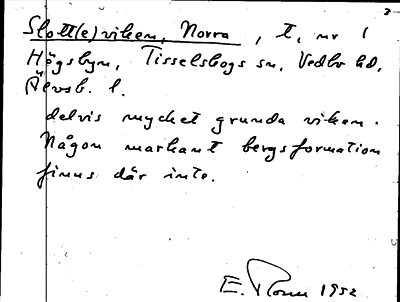 Slott(e)viken, Norra, t. nr 1
Högsbyn, Tisselskogs sn, Vedbo hd,
Älvsb. l.
delvis mycket grunda viken.
Någon markant bergsformation
finns där inte.
E. 1952